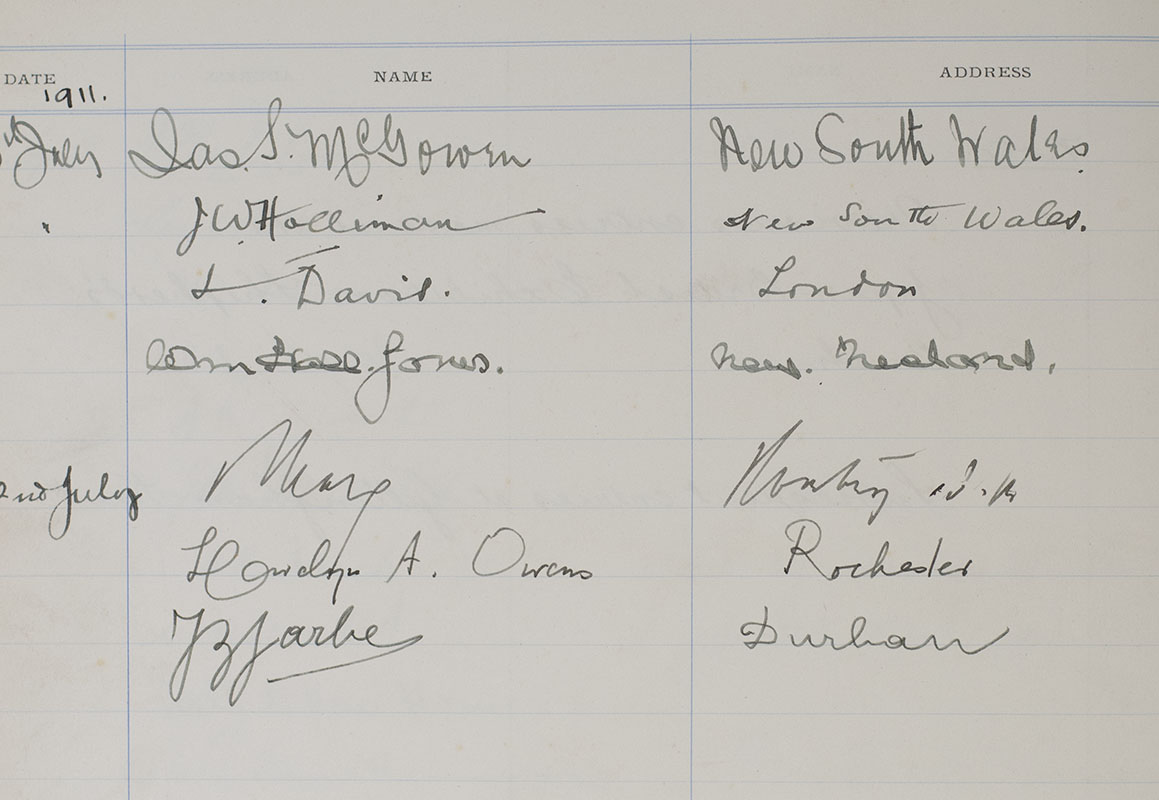 DATE NAME ADDRESS
1911.
July Jas. S. McGowen New South Wales.
" J W Holliman New South Wales.
L. Davis. London
Wm Hall. Jones. New. Zealand.
2nd July Mary
Howelyn A. Owens Rochester
Durham